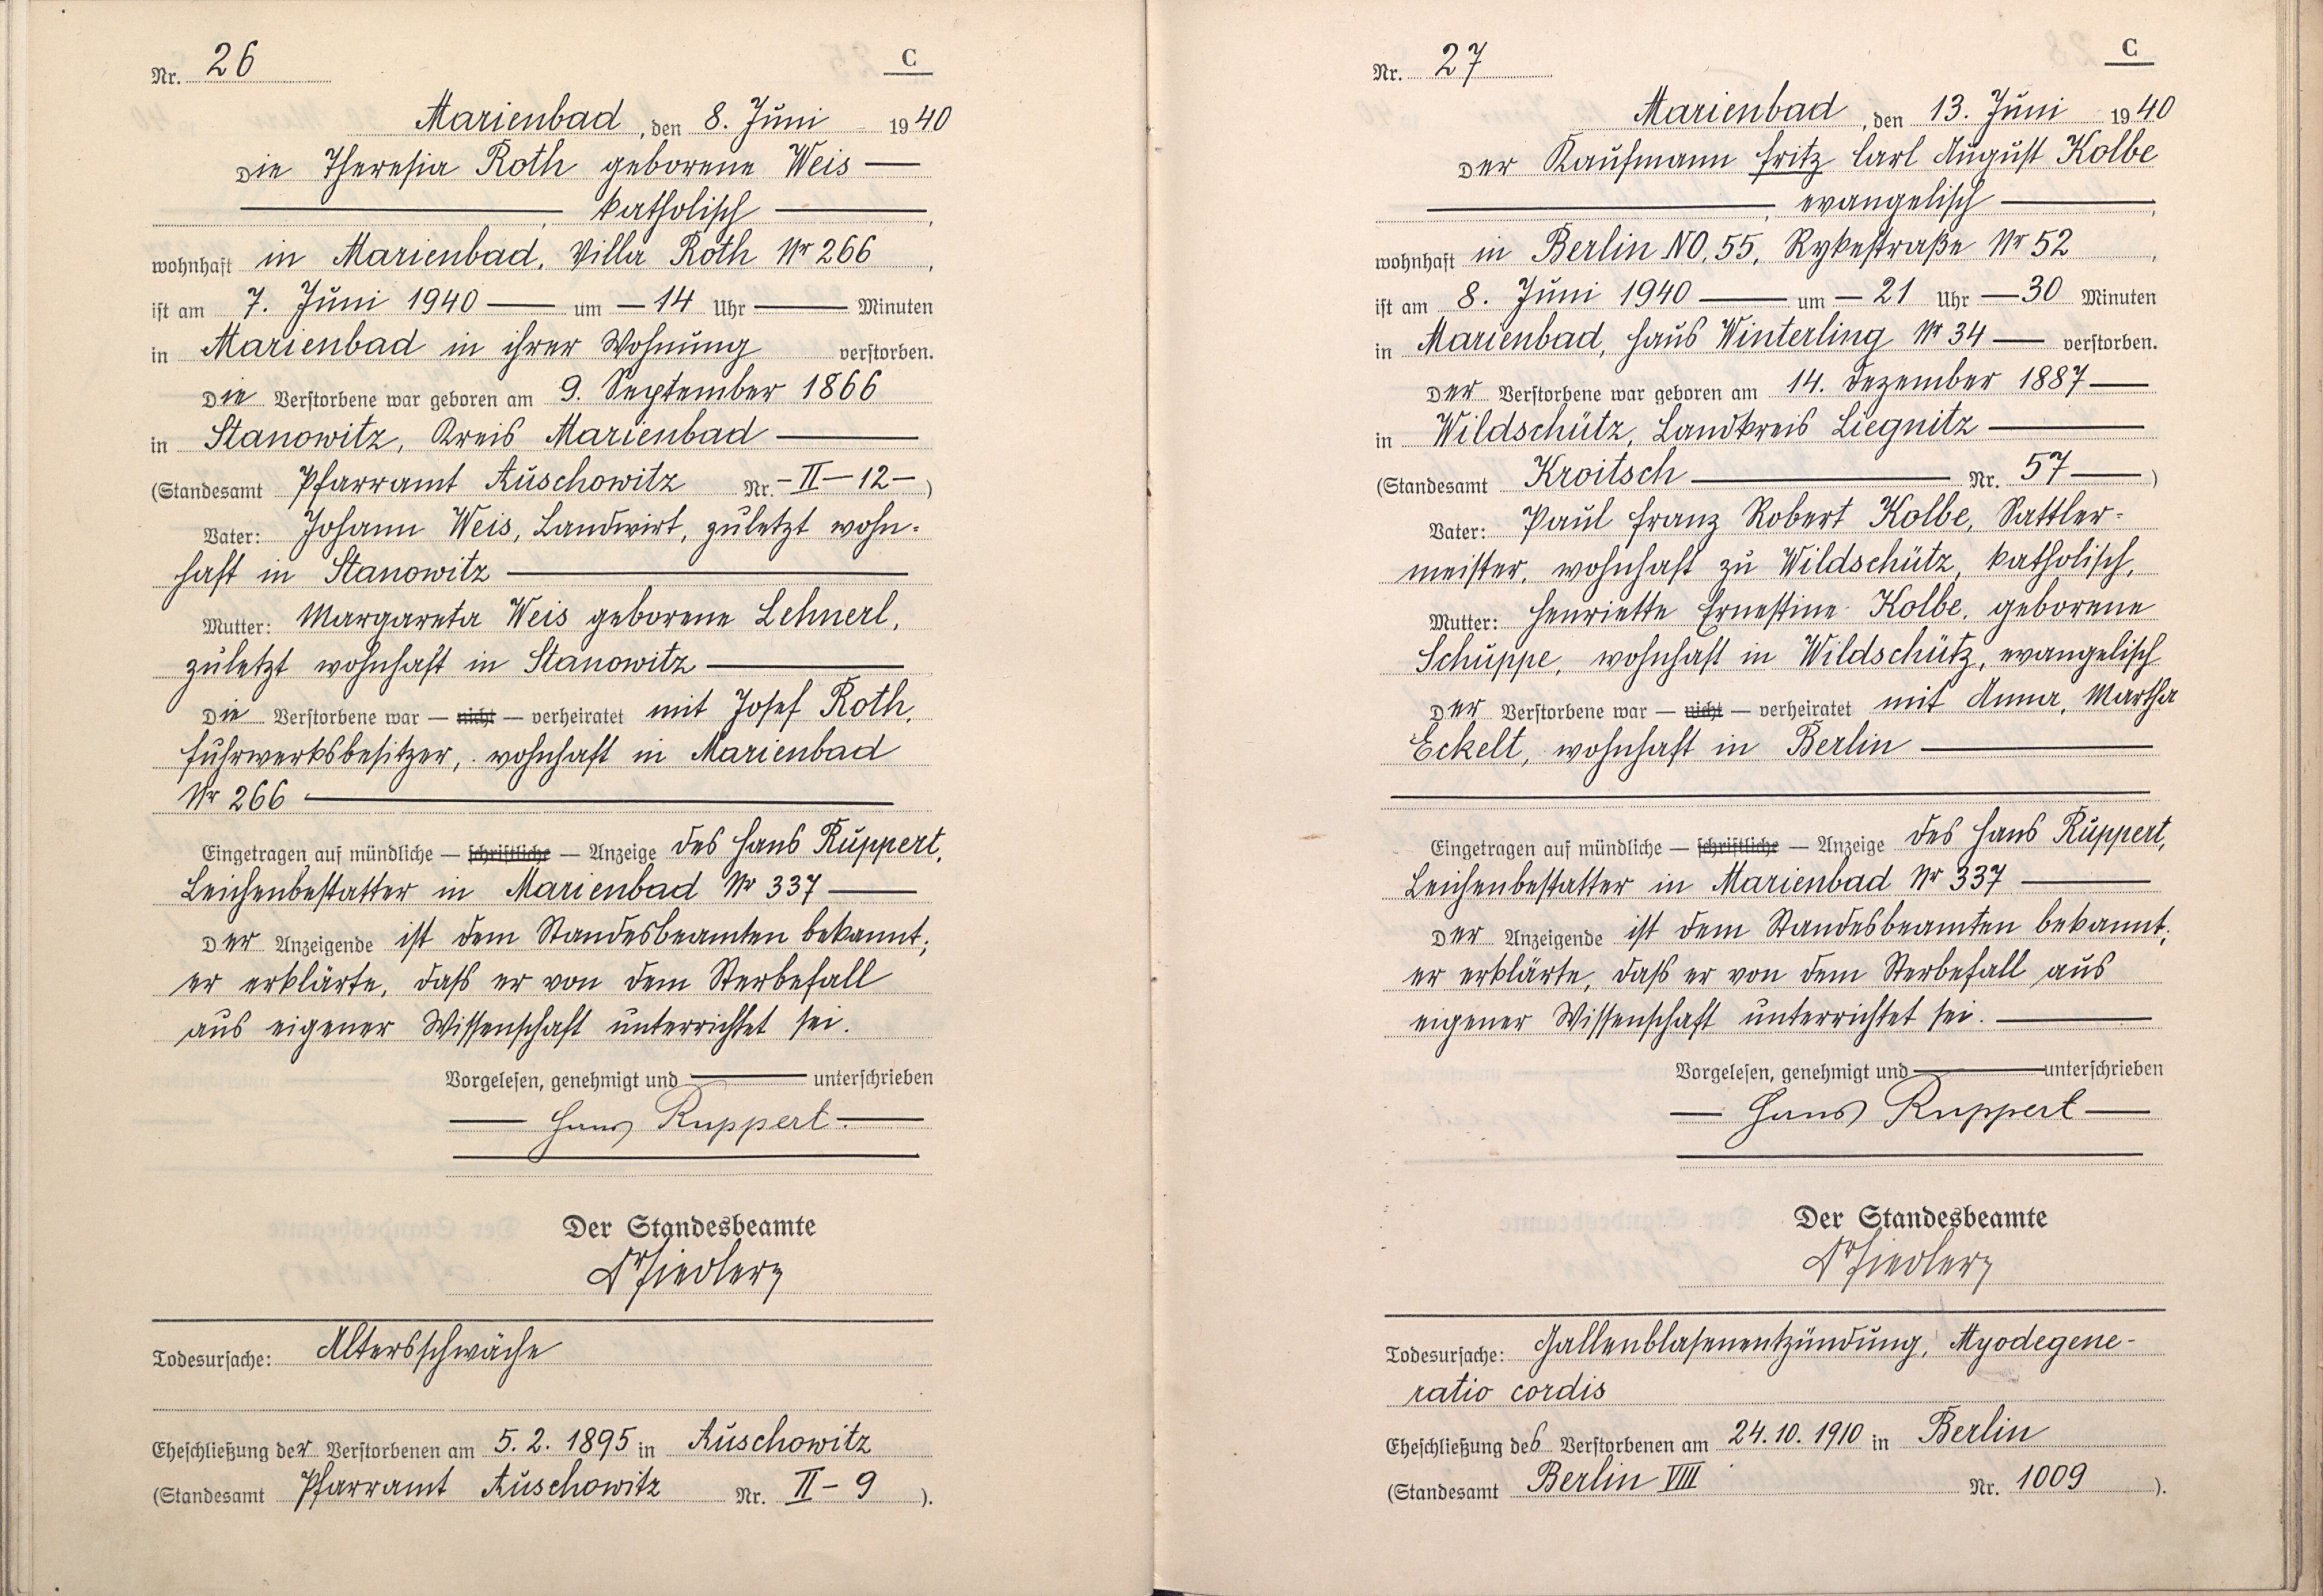 Nr. 26
C
Marienbad, den 8. Juni 1940
Die Theresia Roth geborene Weis —
— katholisch —,
wohnhaft in Marienbad, Villa Roth Nr 266,
ist am 7. Juni 1940 — um — 14 Uhr — Minuten
in Marienbad in ihrer Wohnung verstorben.
Die Verstorbene war geboren am 9. September 1866
in Stanowitz, Kreis Marienbad —
(Standesamt Pfarramt Auschowitz Nr. - II - 12 - )
Vater: Johann Weis, Landwirt, zuletzt wohn-
haft in Stanowitz —
Mutter: Margareta Weis geborene Lehnerl,
zuletzt wohnhaft in Stanowitz —
Die Verstorbene war — nicht — verheiratet mit Josef Roth,
Fuhrwerksbesitzer, wohnhaft in Marienbad
Nr 266 —
Eingetragen auf mündliche — schriftliche — Anzeige des Hans Ruppert,
Leichenbestatter in Marienbad Nr 337 —
Der Anzeigende ist dem Standesbeamten bekannt;
er erklärte, daß er von dem Sterbefall
aus eigener Wissenschaft unterrichtet sei.
Vorgelesen, genehmigt und — unterschrieben
— Hans Ruppert. —
Der Standesbeamte
Dr Fiedler
Todesursache: Altersschwäche
Eheschließung der Verstorbenen am 5. 2. 1895 in Auschowitz
(Standesamt Pfarramt Auschowitz Nr. II - 9 ).
Nr. 27
C
Marienbad, den 13. Juni 1940
Der Kaufmann Fritz Carl August Kolbe
—, evangelisch —,
wohnhaft in Berlin NO. 55, Rykestraße Nr 52,
ist am 8. Juni 1940 — um — 21 Uhr — 30 Minuten
in Marienbad, Haus Winterling Nr 34 — verstorben.
Der Verstorbene war geboren am 14. Dezember 1887 —
in Wildschütz, Landkreis Liegnitz —
(Standesamt Kroitsch — Nr. 57 — )
Vater: Paul Franz Robert Kolbe, Sattler-
meister, wohnhaft zu Wildschütz, katholisch,
Mutter: Henriette Ernestine Kolbe, geborene
Schuppe, wohnhaft in Wildschütz, evangelisch
Der Verstorbene war — nicht — verheiratet mit Anna, Martha
Eckelt, wohnhaft in Berlin —
Eingetragen auf mündliche — schriftliche — Anzeige des Hans Ruppert,
Leichenbestatter in Marienbad Nr 337 —
Der Anzeigende ist dem Standesbeamten bekannt;
er erklärte, daß er von dem Sterbefall aus
eigener Wissenschaft unterrichtet sei. —
Vorgelesen, genehmigt und — unterschrieben
— Hans Ruppert —
Der Standesbeamte
Dr Fiedler
Todesursache: Gallenblasenentzündung, Myodegene-
ratio cordis
Eheschließung des Verstorbenen am 24. 10. 1910 in Berlin
(Standesamt Berlin VIII Nr. 1009 ).